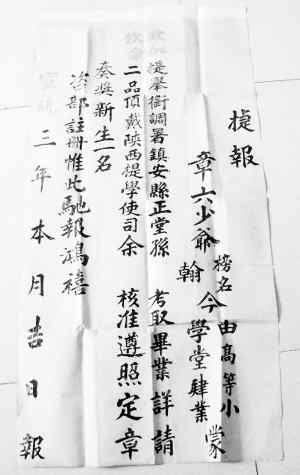 捷報
章六少爺翰今榜名由高等小學堂肄業蒙
提舉銜調署鎮安縣正堂孫 考取畢業詳請
二品頂戴陝西提學使司余 核准遵照定章
奏獎新生一名
咨部註冊惟此馳報鴻禧
宣統三年本月吉日 報